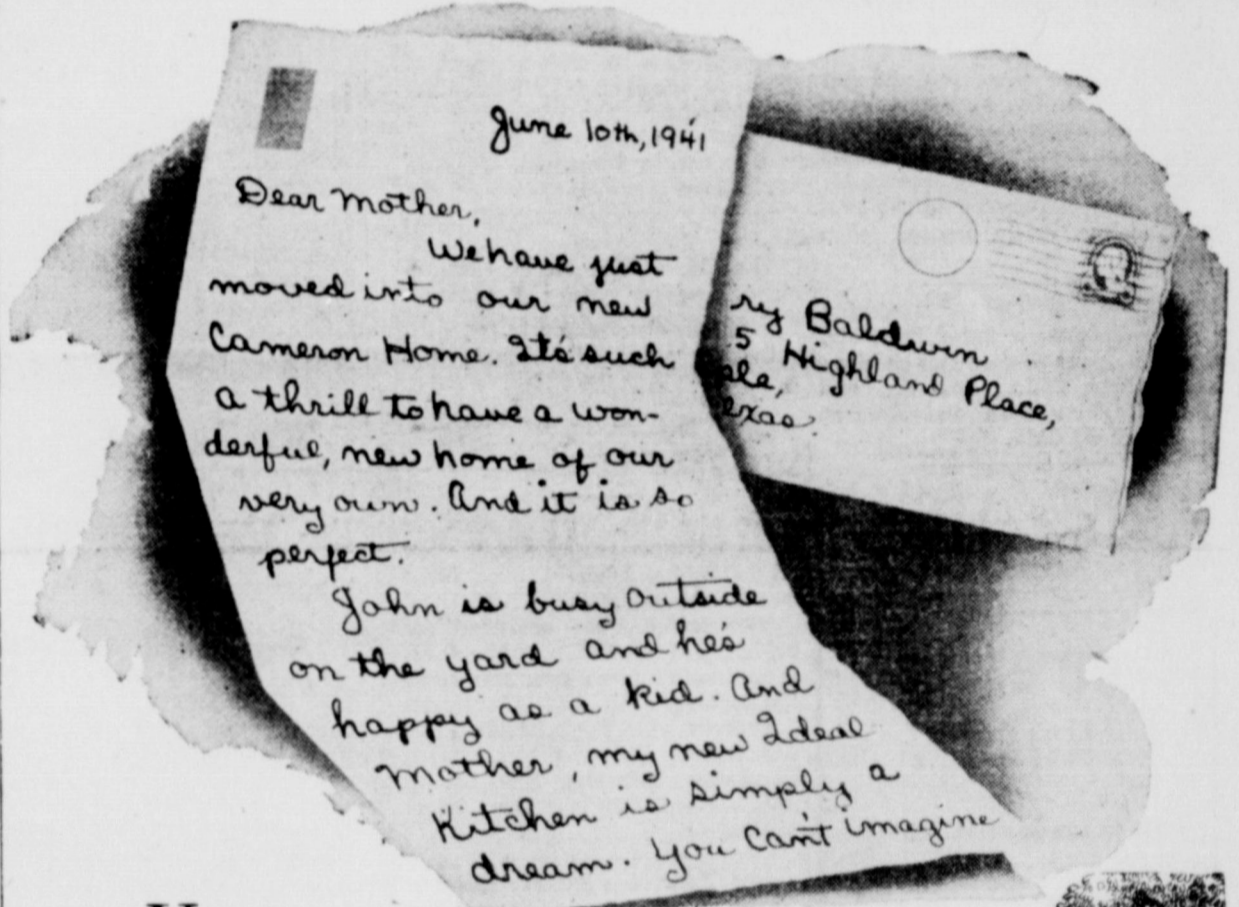 June 10th, 1941
Dear Mother,
We have just
moved into our new
Cameron Home. It's such
a thrill to have a won-
derful, new home of our
very own. And it is so
perfect.
John is busy outside
on the yard and he's
happy as a kid. And
Mother, my new Ideal
Kitchen is simply a
dream. You can't imagine
ry Baldwin
5 Highland Place,
ale,
exas.